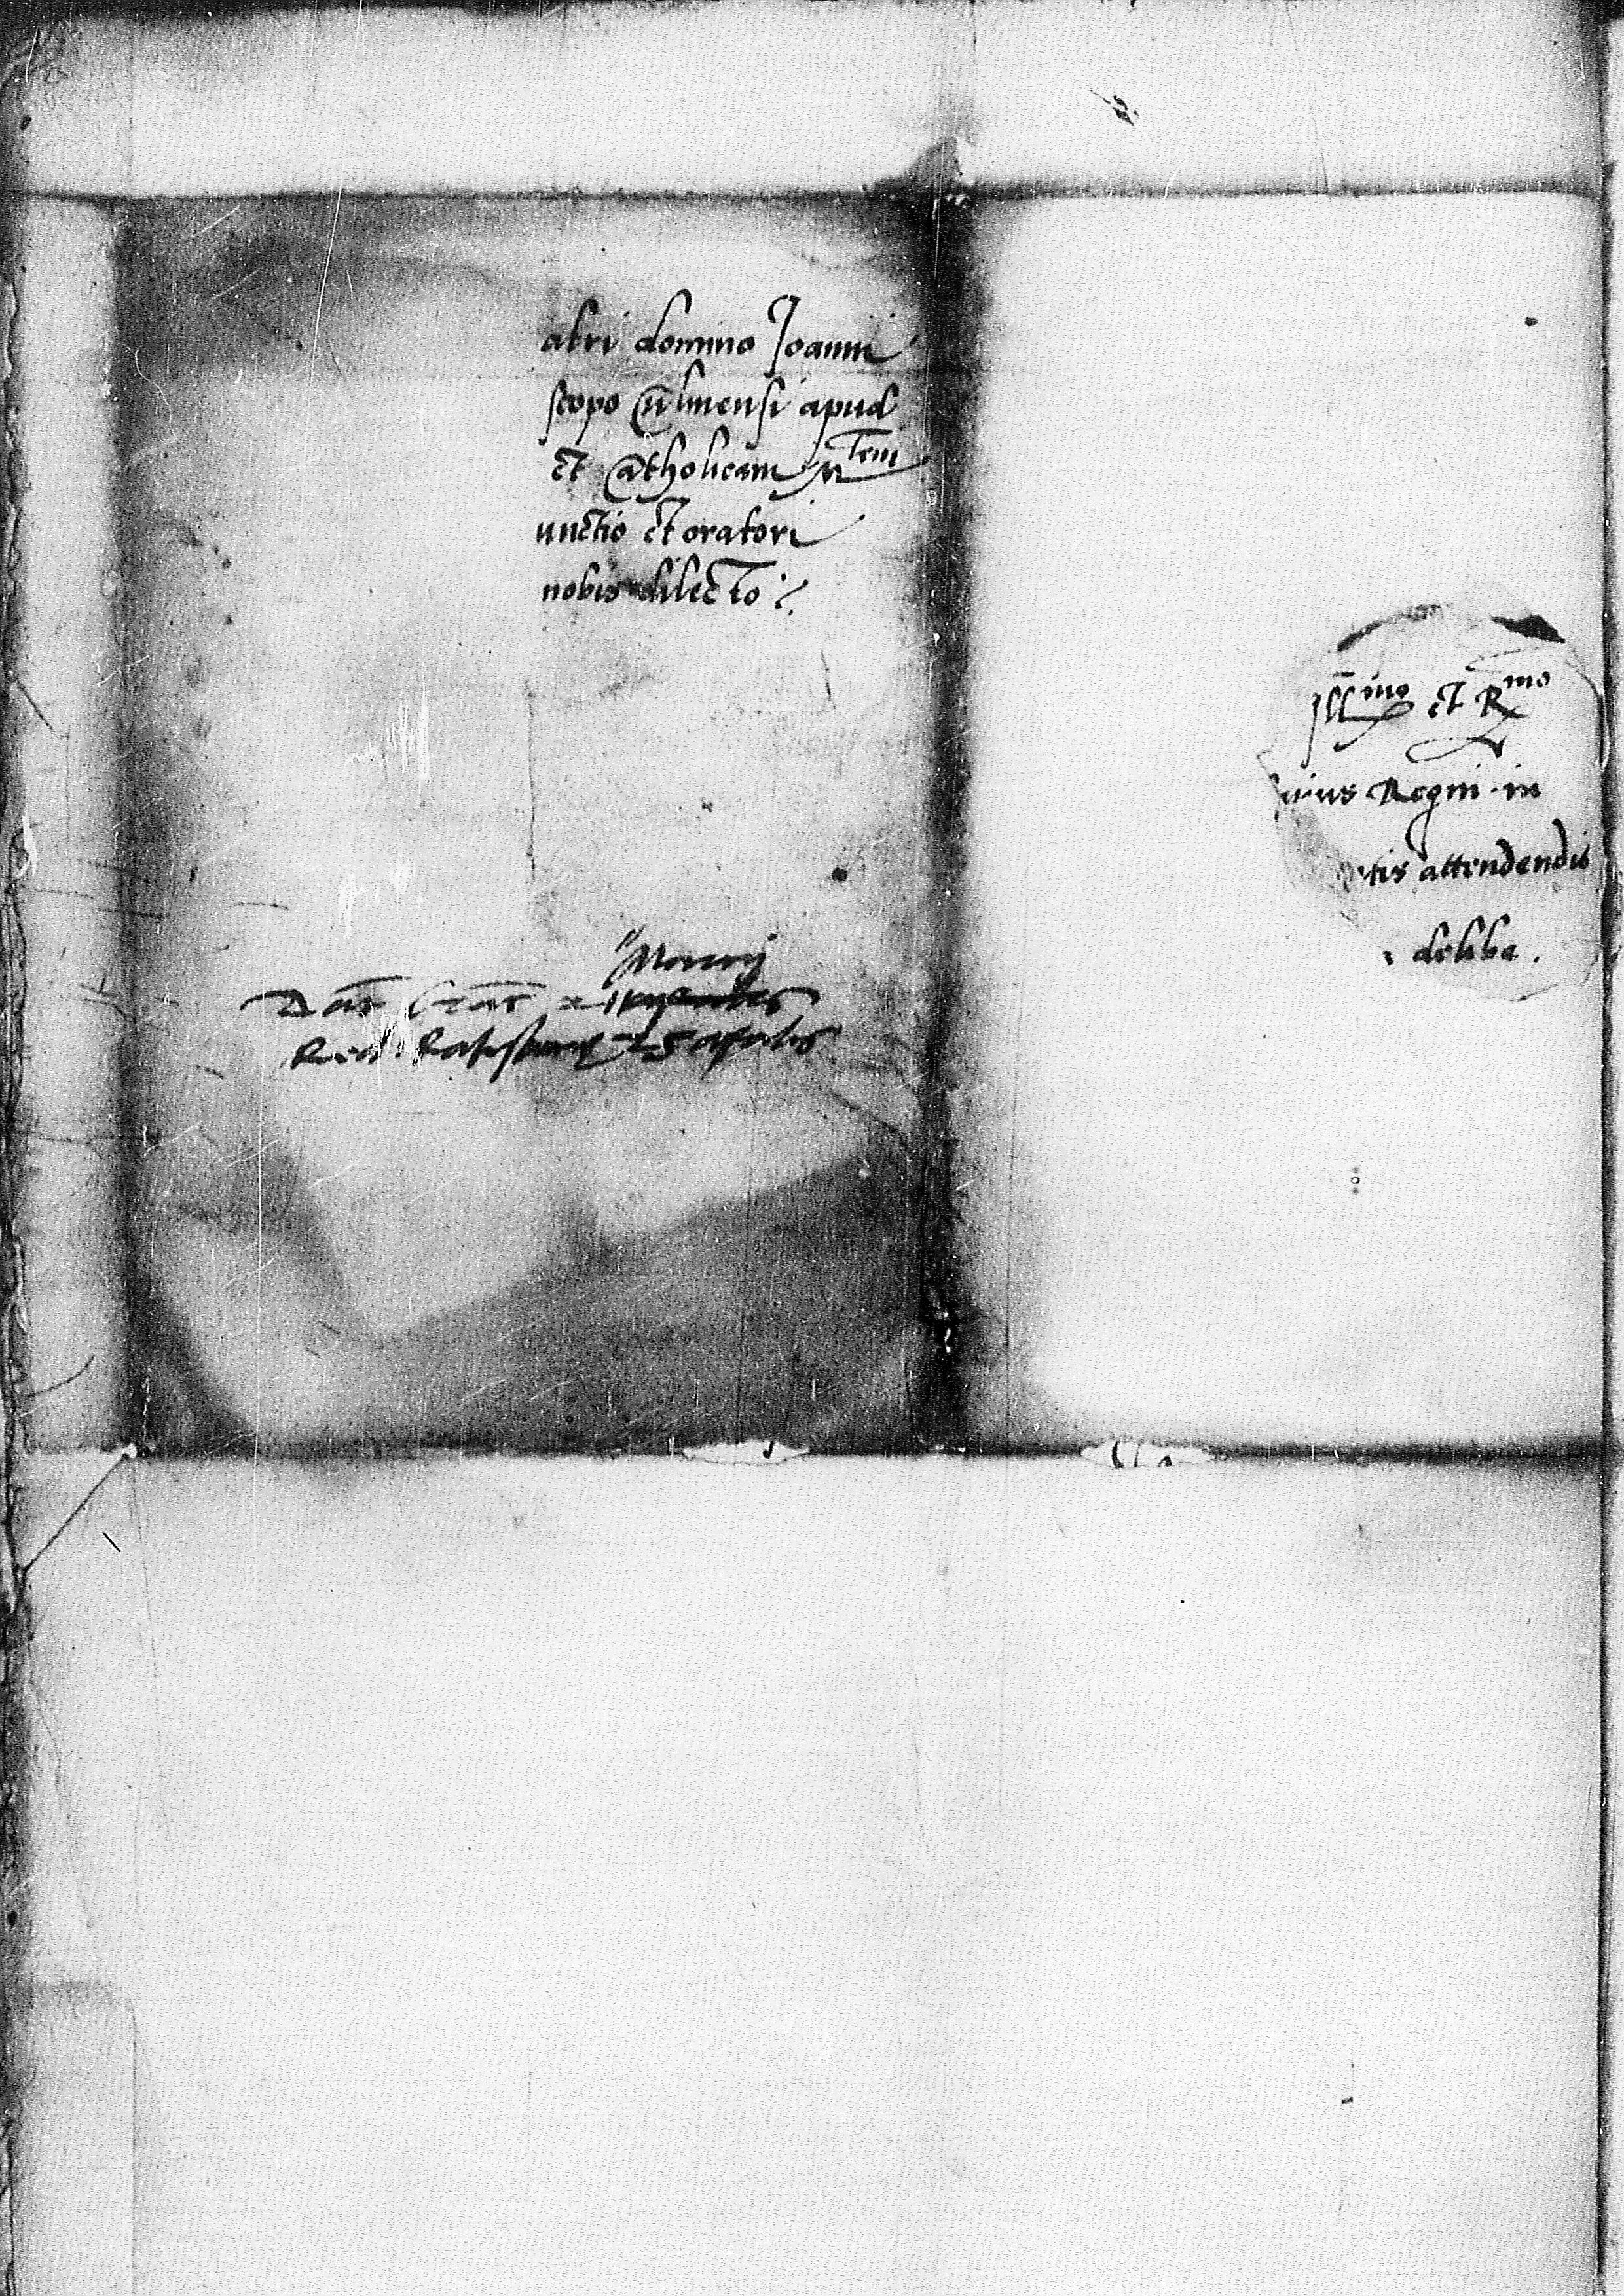 atri domino Joanni
scopo Culmensi apud
et Catholicam Mtem
unctio et oratori
nobis dilecto
Marcii
Dat Crac
Red Ratisbone 25 aprilis
Illmo et Rmo
uius Regni in
etis attendendis
delibe.